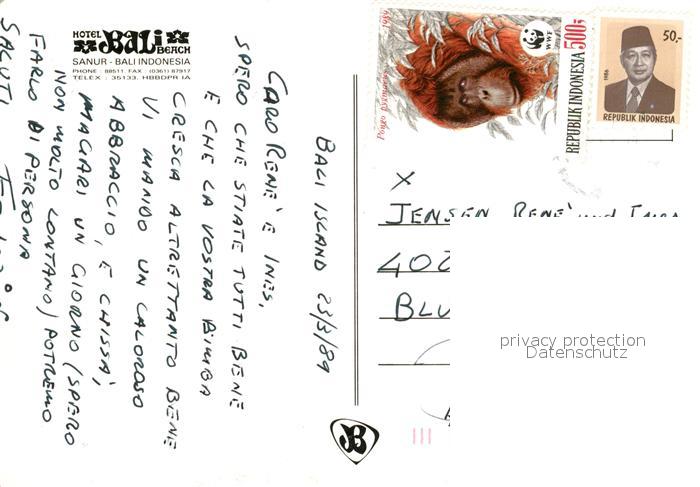 HOTEL
Bali
BEACH
SANUR - BALI INDONESIA
PHONE : 88511 FAX : (0361) 87917
TELEX : 35133. HBBDPR IA
BALI ISLAND 23/3/89
CARO RENE' E INES,
SPERO CHE STIATE TUTTI BENE
E CHE LA VOSTRA BIMBA
CRESCA ALTRETTANTO BENE
VI MANDO UN CALOROSO
ABBRACCIO, E CHISSA',
MAGARI UN GIORNO (SPERO
NON MOLTO LONTANO) POTREMO
FARLO DI PERSONA
SALUTI
Pongo pygmaeus 1989
WWF
REPUBLIK INDONESIA 500
50,-
1986
REPUBLIK INDONESIA
X
JENSEN RENE' und
402
BLU
privacy protection
Datenschutz
JB